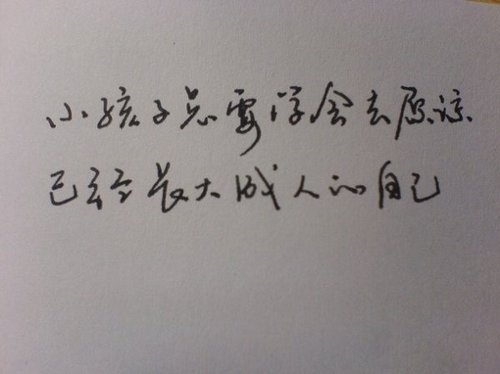 小孩子总要学会去原谅
已经长大成人的自己